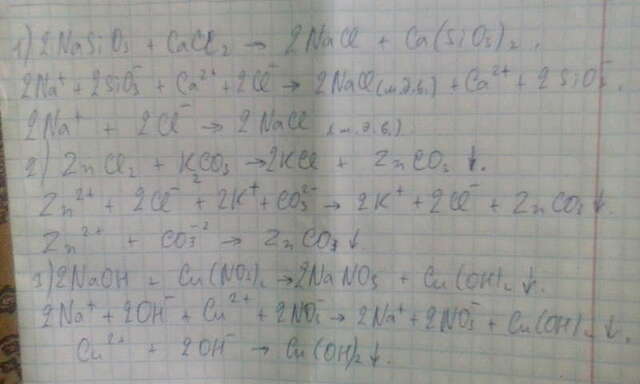 1) 2NaSiO3 + CaCl2 → 2NaCl + Ca(SiO3)2.
2Na⁺ + 2SiO3⁻ + Ca²⁺ + 2Cl⁻ → 2NaCl(м.д.в.) + Ca²⁺ + 2SiO3⁻.
2Na⁺ + 2Cl⁻ → 2NaCl (м.д.в.)
2) ZnCl2 + K2CO3 → 2KCl + ZnCO3 ↓.
Zn²⁺ + 2Cl⁻ + 2K⁺ + CO3²⁻ → 2K⁺ + 2Cl⁻ + ZnCO3 ↓.
Zn²⁺ + CO3⁻² → ZnCO3 ↓.
3) 2NaOH + Cu(NO3)2 → 2NaNO3 + Cu(OH)2 ↓.
2Na⁺ + 2OH⁻ + Cu²⁺ + 2NO3⁻ → 2Na⁺ + 2NO3⁻ + Cu(OH)2 ↓.
Cu²⁺ + 2OH⁻ → Cu(OH)2 ↓.